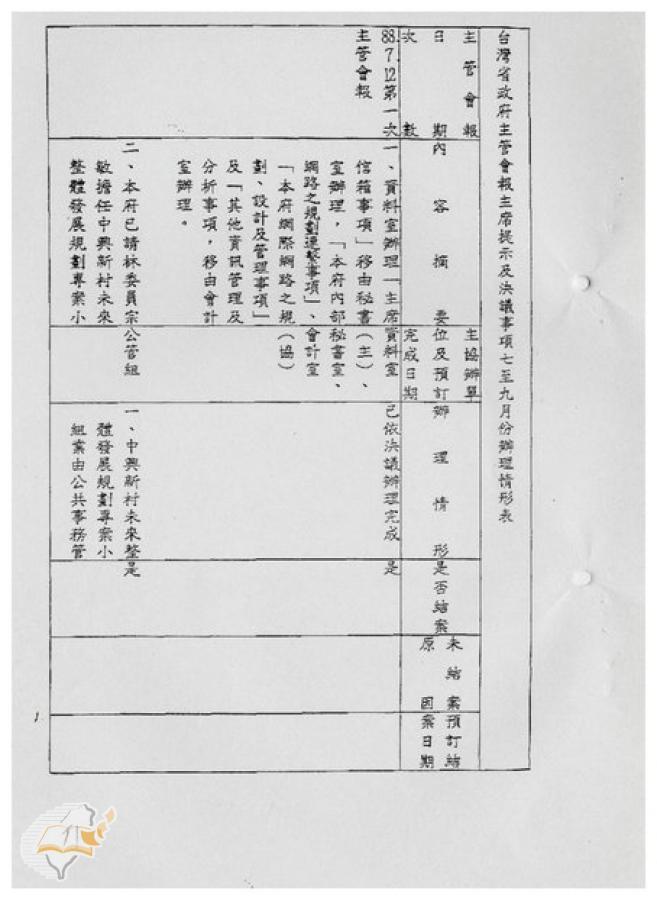 台灣省政府主管會報主席提示及決議事項七至九月份辦理情形表
主管會報
日期
次數
內容摘要
主協辦單
位及預訂
完成日期
辦理情形
是否結案
未結案
原因
預訂結
案日期
88.7.12第一次
主管會報
一、資料室辦理「主席
信箱事項」移由秘書
室辦理，「本府內部
網路之規劃連繫事項」、
「本府網際網路之規
劃、設計及管理事項」
及「其他資訊管理及
分析事項，移由會計
室辦理。
資料室
（主）、
秘書室、
會計室
（協）
已依決議辦理完成
是
二、本府已請林委員宗
敏擔任中興新村未來
整體發展規劃專案小
公管組
一、中興新村未來整
體發展規劃專案小
組業由公共事務管
是
1